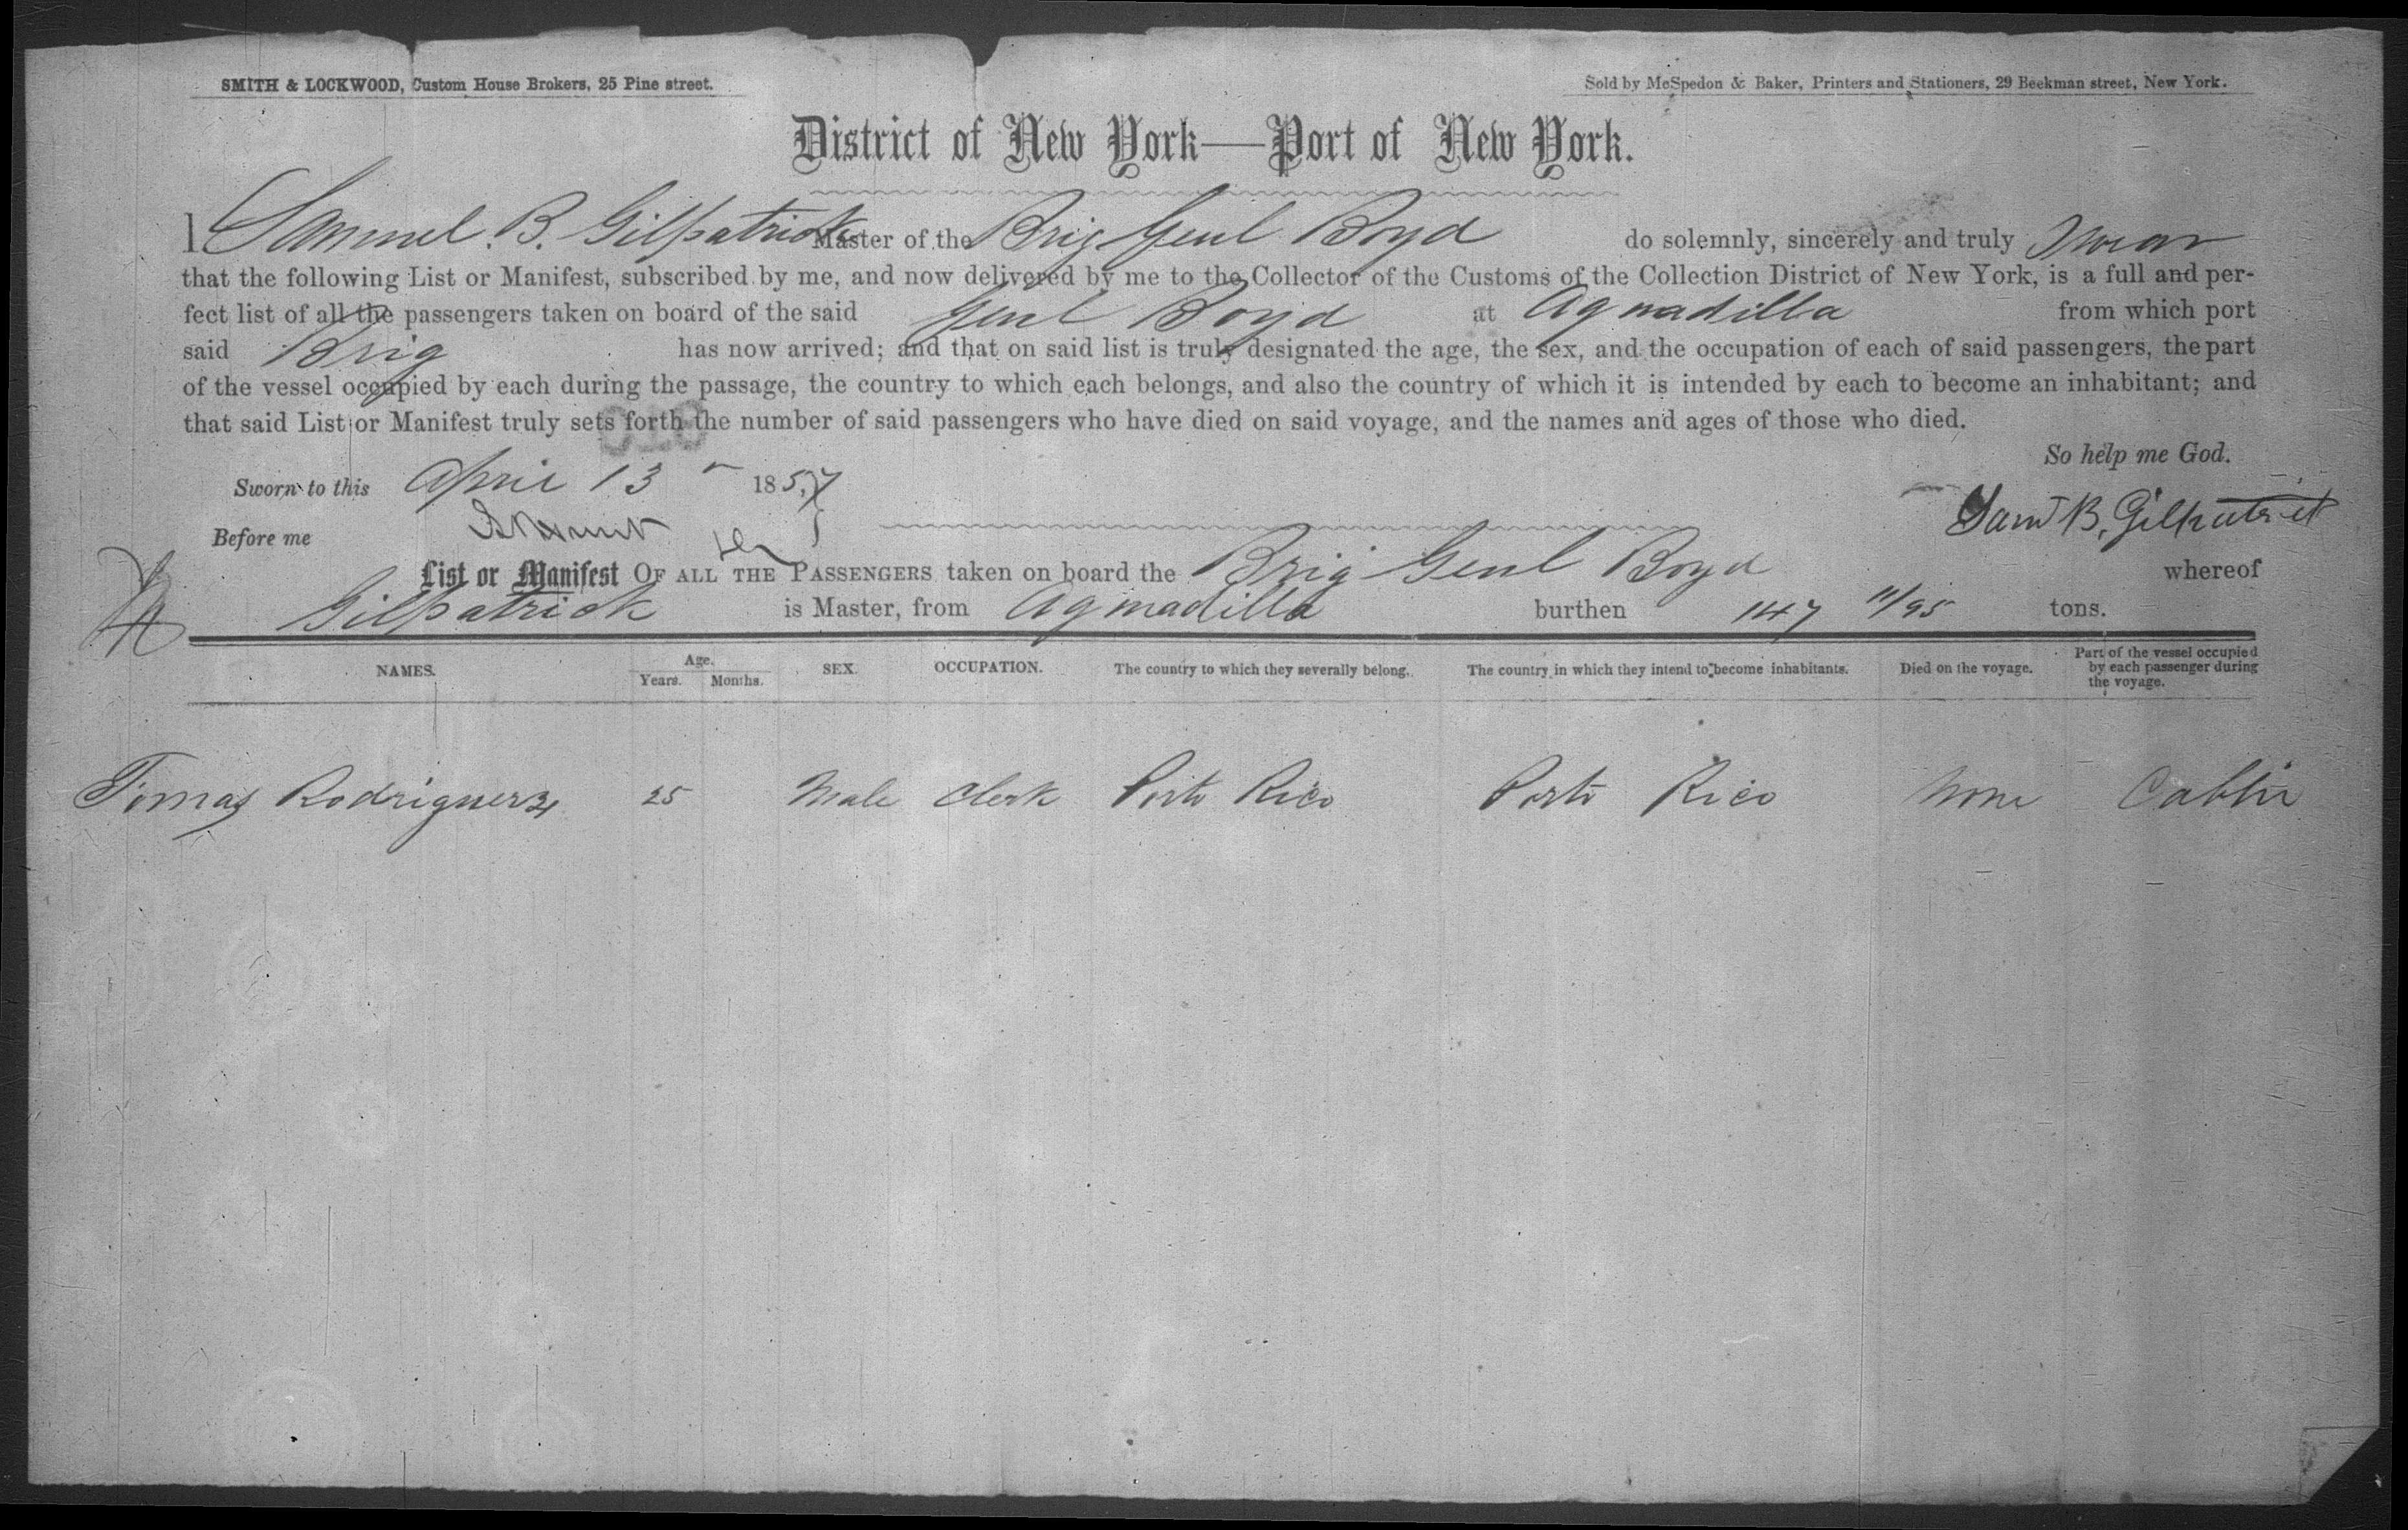 SMITH & LOCKWOOD, Custom House Brokers, 25 Pine street.
Sold by McSpedon & Baker, Printers and Stationers, 29 Beekman street, New York.
District of New York—Port of New York.
I Samuel B. Gilpatrick Master of the Brig Genl Boyd do solemnly, sincerely and truly Swear
that the following List or Manifest, subscribed by me, and now delivered by me to the Collector of the Customs of the Collection District of New York, is a full and per-
fect list of all the passengers taken on board of the said Genl Boyd at Aguadilla from which port
said Brig has now arrived; and that on said list is truly designated the age, the sex, and the occupation of each of said passengers, the part
of the vessel occupied by each during the passage, the country to which each belongs, and also the country of which it is intended by each to become an inhabitant; and
that said List or Manifest truly sets forth the number of said passengers who have died on said voyage, and the names and ages of those who died.
So help me God.
Sworn to this April 13 1857
Saml B. Gilpatrick
Before me
List or Manifest OF ALL THE PASSENGERS taken on board the Brig Genl Boyd whereof
Gilpatrick is Master, from Aguadilla burthen 147 11/95 tons.
NAMES. Age. Years. Months. SEX. OCCUPATION. The country to which they severally belong. The country in which they intend to become inhabitants. Died on the voyage. Part of the vessel occupied by each passenger during the voyage.
Tomas Rodriguerz 25 Male Clerk Porto Rico Porto Rico None Cabbin